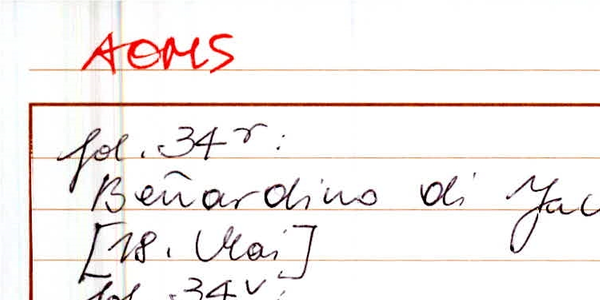 AOMS
fol. 34r:
Beñardino di Jac
[18. Mai]
fol. 34v: